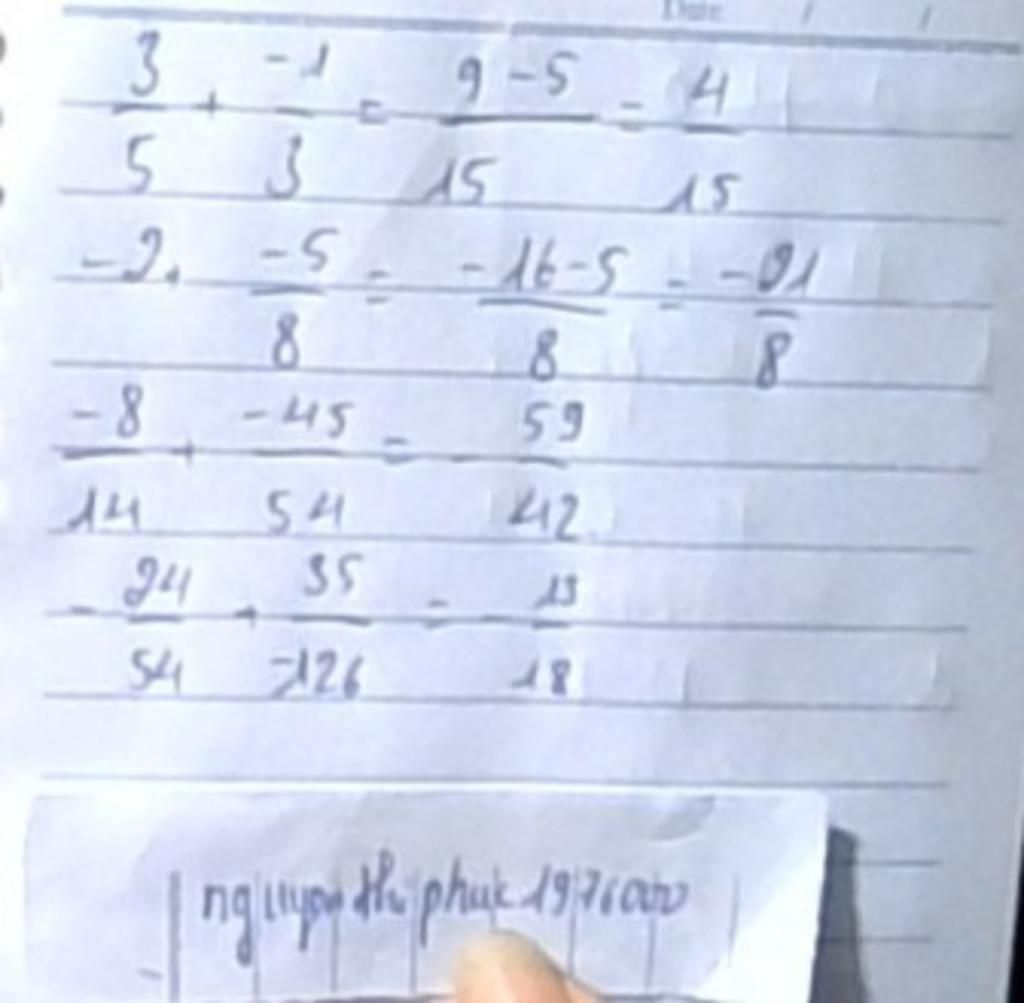 Date / /
3/5 + -1/3 = 9-5/15 = 4/15
-2 + -5/8 = -16-5/8 = -21/8
-8/14 + -45/54 = 59/42
-24/54 + 35/-126 = 13/18
nguyen thi phuc 1976000